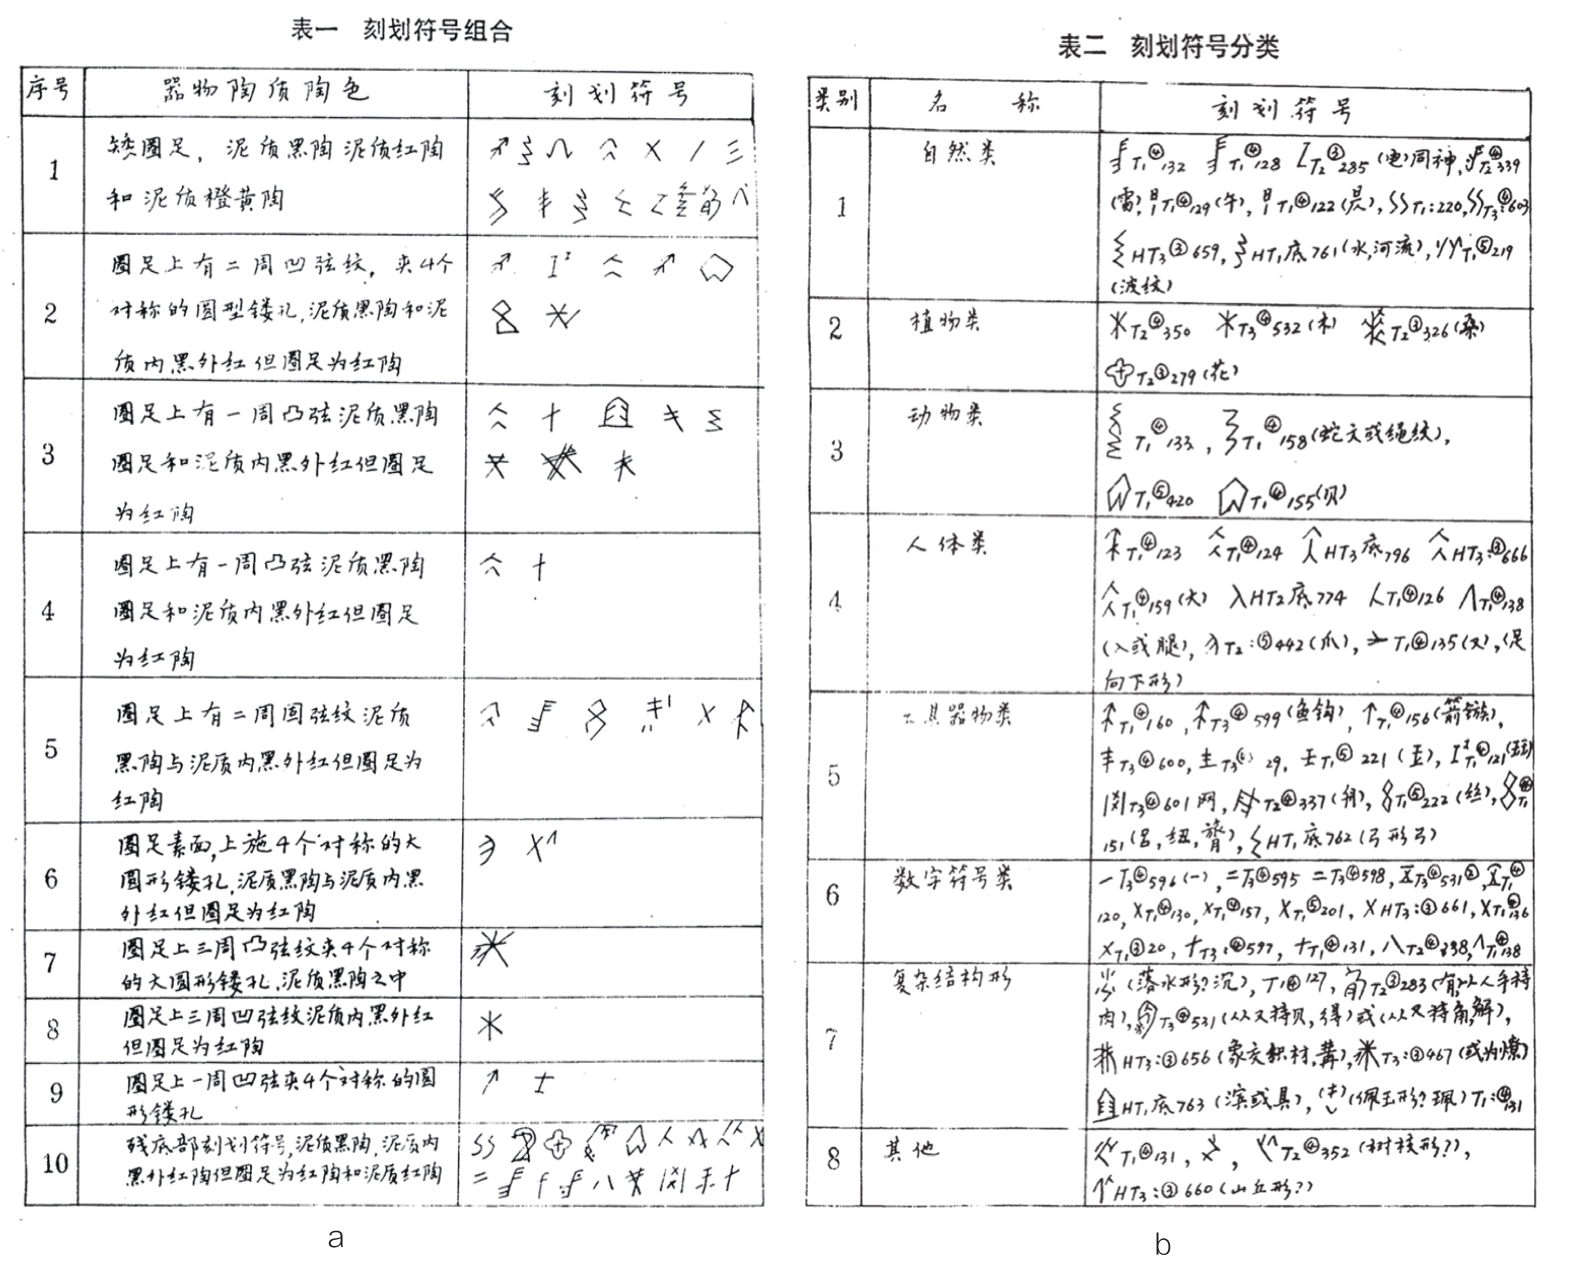 表一 刻划符号组合
序号 器物陶质陶色 刻划符号
1
矮圈足，泥质黑陶泥质红陶
和泥质橙黄陶
2
圈足上有二周凹弦纹，夹4个
对称的圆型镂孔,泥质黑陶和泥
质内黑外红但圈足为红陶
3
圈足上有一周凸弦泥质黑陶
圈足和泥质内黑外红但圈足
为红陶
4
圈足上有一周凸弦泥质黑陶
圈足和泥质内黑外红但圈足
为红陶
5
圈足上有二周圆弦纹泥质
黑陶与泥质内黑外红但圈足为
红陶
6
圈足素面,上施4个对称的大
圆形镂孔,泥质黑陶与泥质内黑
外红但圈足为红陶
7
圈足上三周凸弦纹夹4个对称
的大圆形镂孔,泥质黑陶之中
8
圈足上三周凹弦纹泥质内黑外红
但圈足为红陶
9
圈足上一周凹弦夹4个对称的圆
形镂孔
10
残底部刻划符号,泥质黑陶,泥质内
黑外红陶但圈足为红陶和泥质红陶
a
表二 刻划符号分类
类别 名称 刻划符号
1 自然类
T₁④132 T₁④128 T₂③285(电)同神, T₂④339
(雷), T₁④129(牛), T₁④122(昃), T₁:220, T₃④603
HT₃③659, HT₁底761(水,河流), T₁⑤219
(波纹)
2 植物类
T₂④350 T₃④532(木) T₂③326(桑)
T₂③279(花)
3 动物类
T₁④133, T₁④158(蛇文或绳纹),
T₁⑤420 T₁④155(贝)
4 人体类
T₁④123 T₁④124 HT3底796 HT₃:③666
T₁④159(大) HT2底774 T₁④126 T₁④138
(入或腿), T₂:⑤442(爪), T₁④135(又),(足
向下形)
5 工具器物类
T₁④160, T₃④599(鱼钩), T₁④156(箭镞),
T₃④600, 29, T₁⑤221(玉), T₁④121
T₃④601网, T₂④337, T₁⑤222(丝), T₁④
151, HT₁底762(弓形弓)
6 数字符号类
一T₃④596(一),二T₃④595 二T₃④598, T₃④531 T₁④
120, T₁④130, T₁④157, T₁⑤201, HT₃:③661, T₁④136
T₁③20, T₃:④597, T₁④131, T₂④338, T₁④138
7 复杂结构形
(落水形?沉), T₁④127, T₂③283(有,以人手持
肉), T₃④531(从又持贝,得)或(从又持角,解),
HT₃:③656(象交积材,冓), T₃:③467(或为燎)
HT₁底763(滨或具), (佩玉形?珮)T₁:④131
8 其他
T₁④131, , T₂④352(树枝形?),
HT₃:③660(山丘形?)
b